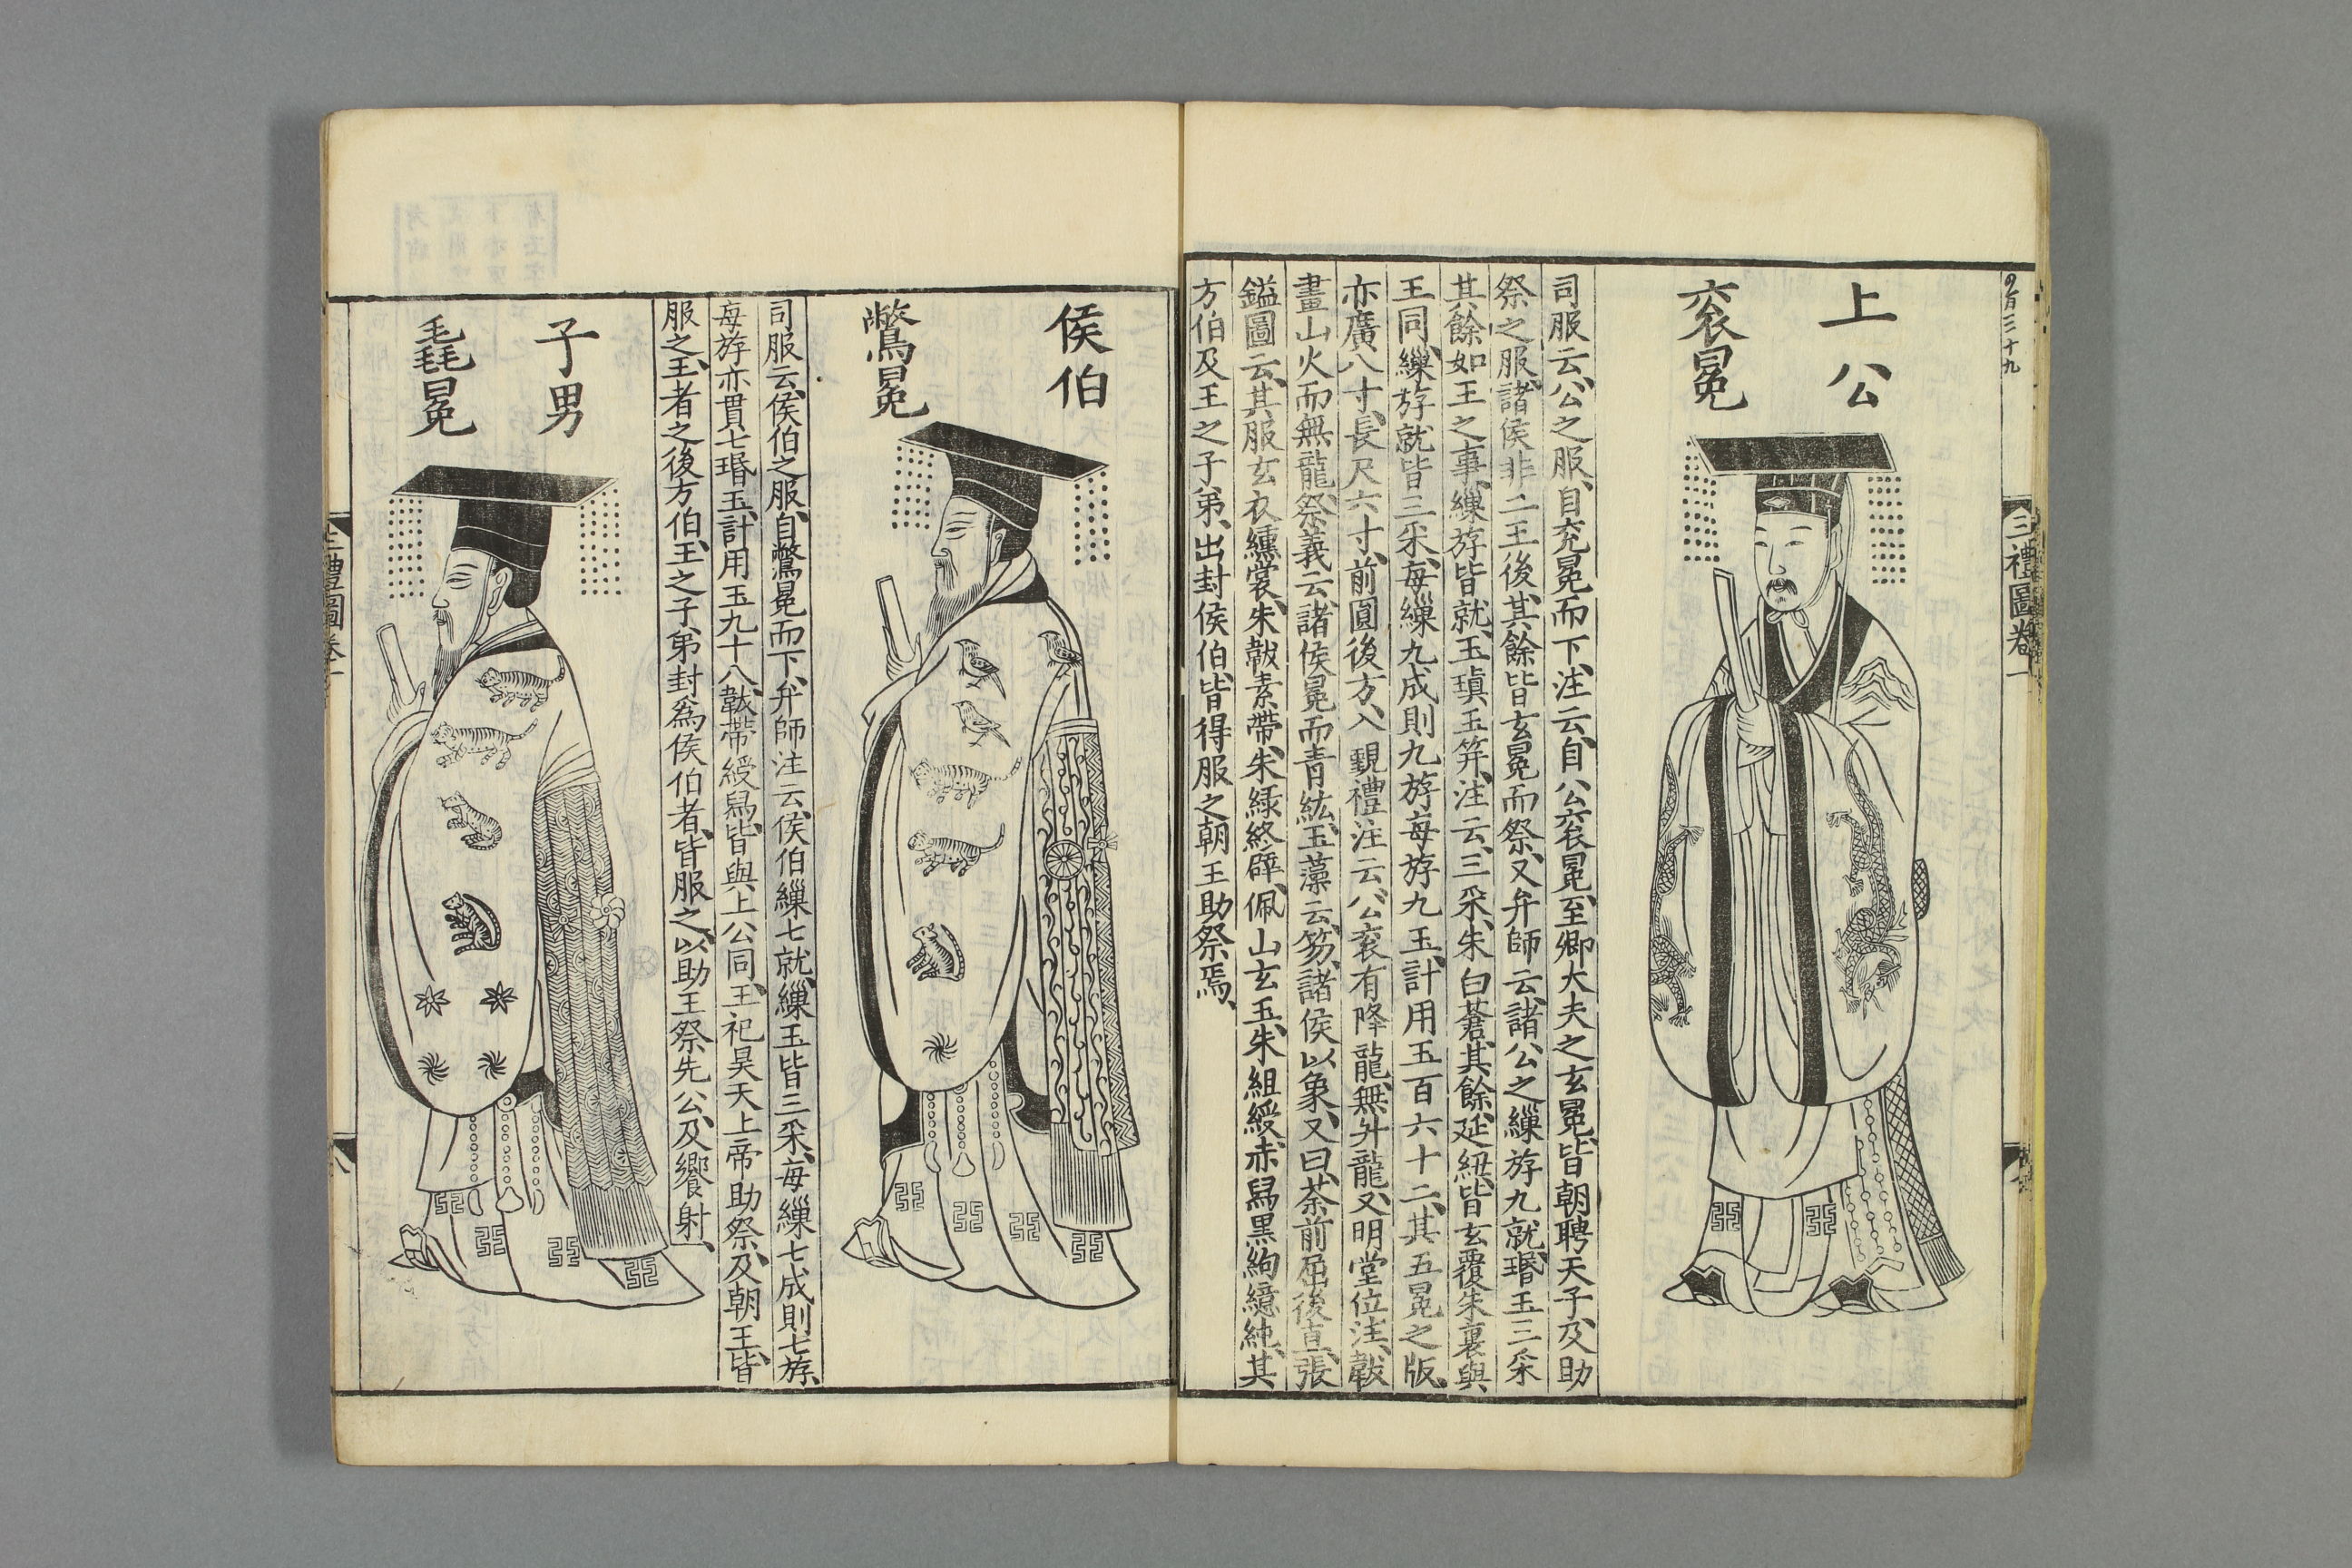 上公
衮冕
司服云、公之服、自衮冕而下、注云、自公衮冕、至卿大夫之玄冕、皆朝聘天子、及助
祭之服、諸侯非二王後、其餘皆玄冕而祭、又弁師云、諸公之繅斿九就、瑉玉三采
其餘如王之事、繅斿皆就、玉瑱玉笄、注云、三采、朱白蒼、其餘、延紐、皆玄覆朱裏與
王同、繅斿就皆三采、每繅九成則九斿每斿九玉、計用玉百六十二、其五冕之版、
亦廣八寸、長尺六寸、前圓後方、入覲禮注云、公衮有降龍、無升龍、又明堂位注、韍
畫山火而無龍、祭義云、諸侯冕而青紘、玉藻云、笏、諸侯以象、又曰、荼前屈後直、張
鎰圖云、其服玄衣纁裳、朱韍素帶、朱綠終辟、佩山玄玉、朱組綬、赤舄黑絇繶純、其
方伯及王之子弟、出封侯伯、皆得服之朝王助祭焉、
侯伯
鷩冕
司服云、侯伯之服、自鷩冕而下、弁師注云、侯伯繅七就、繅玉皆三采、每繅七成、則七斿、
每斿亦貫七瑉玉、計用玉九十八、韍帶綬舄、皆與上公同、王祀昊天上帝助祭、及朝王、皆
服之、王者之後方伯、王之子、弟封爲侯伯者、皆服之、以助王祭先公、及饗射、
子男
毳冕
三禮圖卷一
三禮圖卷一
八